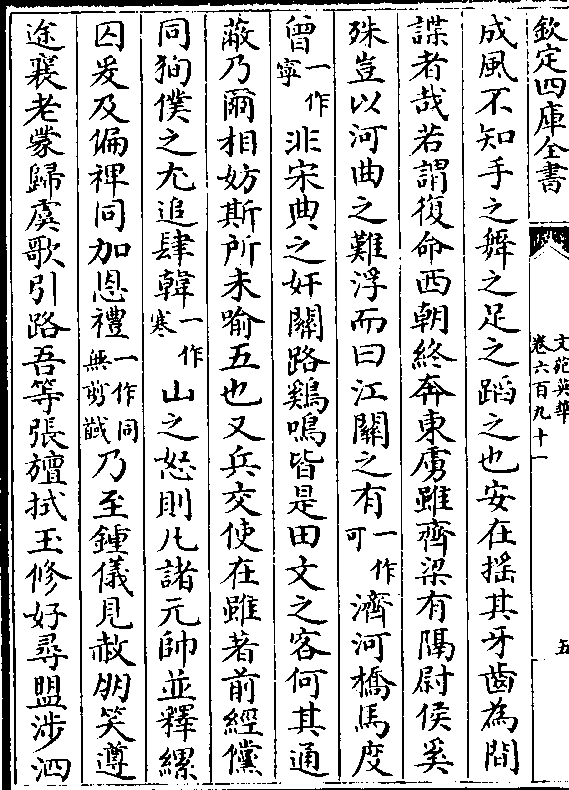 欽定四庫全書
文苑英華
卷六百九十一
五
成風不知手之舞之足之蹈之也安在揺其牙齒為間
諜者哉若謂復命西朝終奔東虜雖齊梁有隔尉侯奚
殊豈以河曲之難浮而曰江關之有一作可濟河橋馬度
曾一作寧非宋典之奸關路鷄鳴皆是田文之客何其通
蔽乃爾相妨斯所未喻五也又兵交使在雖著前經儻
同狥僕之尤追肆韓一作寒山之怒則凡諸元帥並釋縲
囚爰及偏裨同加恩禮一作同無剪馘乃至鍾儀見赦朋笑遵
途襄老蒙歸虞歌引路吾等張旜拭玉修好尋盟涉泗